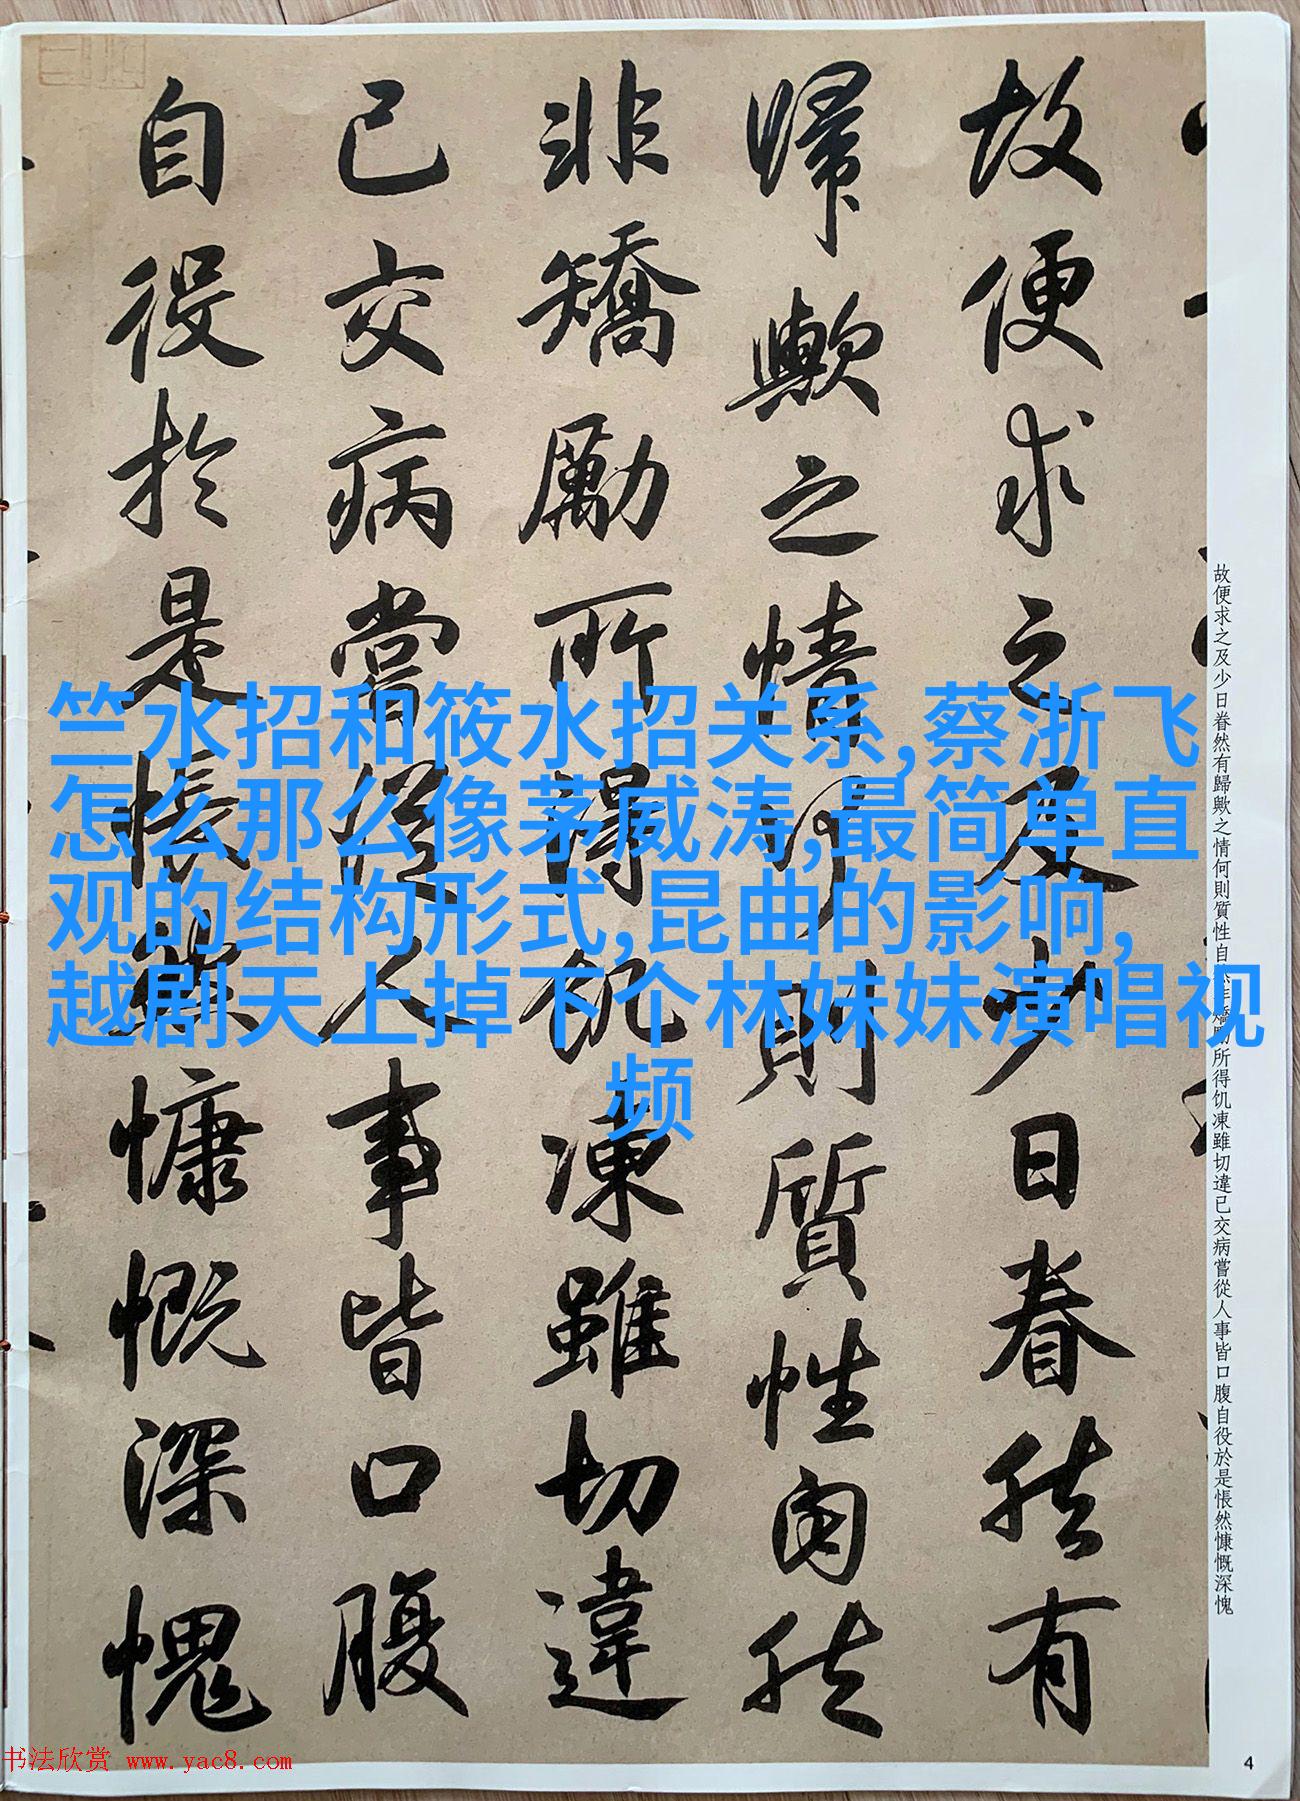 故便求之及少日眷然有
歸歟之情何則質性自然
非矯勵所得饥凍雖切違
已交病嘗從人事皆口腹
自役於是悵然慷慨深愧
故便求之及少日眷然有歸歟之情何則質性自然非矯勵所得饥凍雖切違已交病嘗從人事皆口腹自役於是悵然慷慨深愧
竺水招和筱水招关系,蔡浙飞
怎么那么像茅威涛,最简单直
观的结构形式,昆曲的影响,
越剧天上掉下个林妹妹演唱视
频
书法欣赏 www.yac8.com
4